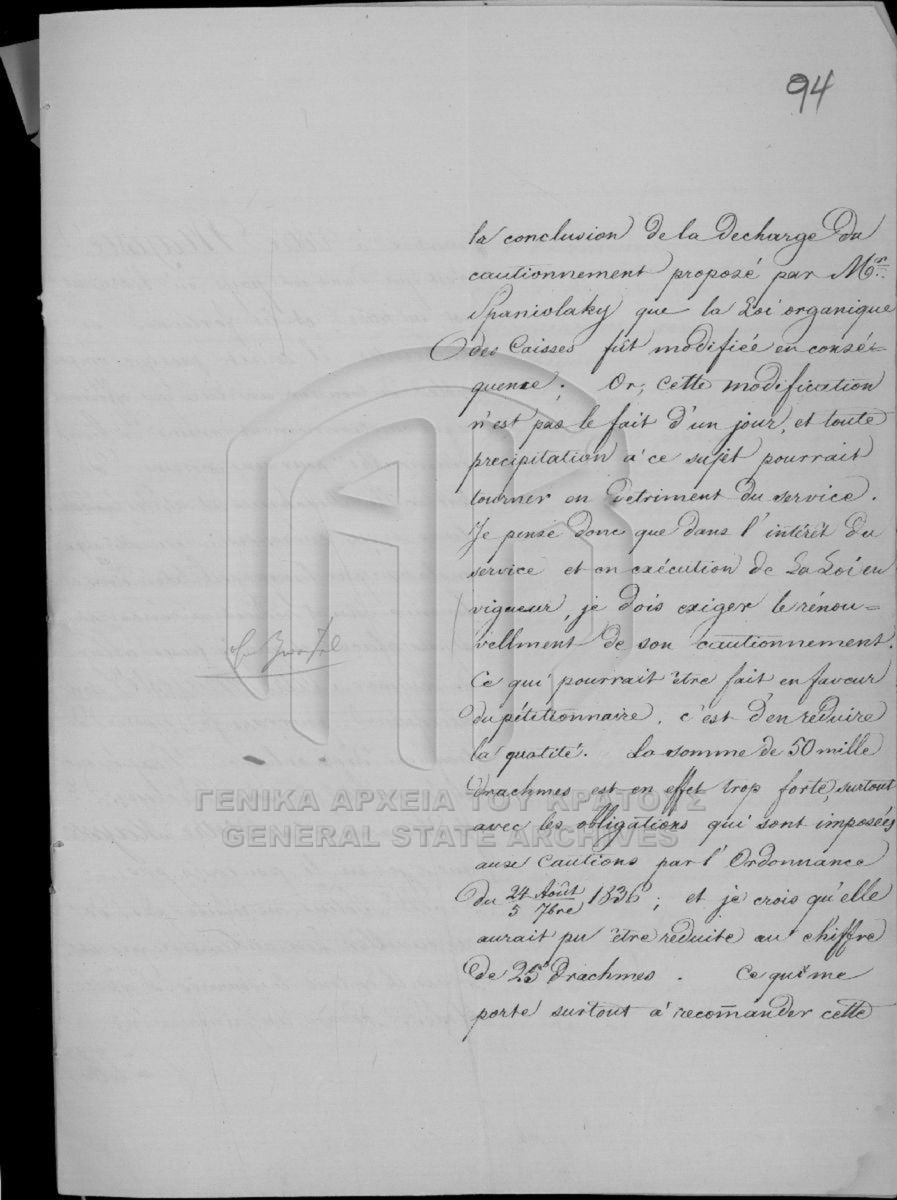 94
la conclusion de la decharge du
cautionnement proposé par Mr.
Spaniolaky que la Loi organique
des Caisses fût modifiée en consé-
quence; Or, cette modification
n'est pas le fait d'un jour, et toute
precipitation a' ce sujet pourrait
tourner en detriment du service.
Je pense donc que dans l'intérêt du
service et en exécution de La Loi en
vigueur, je dois exiger le rénou-
vellment de son cautionnement.
Ce qui pourrait être fait en faveur
du pétitionnaire, c'est d'en reduire
la quotité. La somme de 50 mille
drachmes est en effet trop forte, surtout
avec les obligations qui sont imposées
aux Cautions par l'Ordonnance
du 24 Août / 5 7bre 1836; et je crois qu'elle
aurait pu être reduite au chiffre
de 25 drachmes. Ce qui me
porte surtout à recommander cette
ΓΕΝΙΚΑ ΑΡΧΕΙΑ ΤΟΥ ΚΡΑΤΟΥΣ
GENERAL STATE ARCHIVES